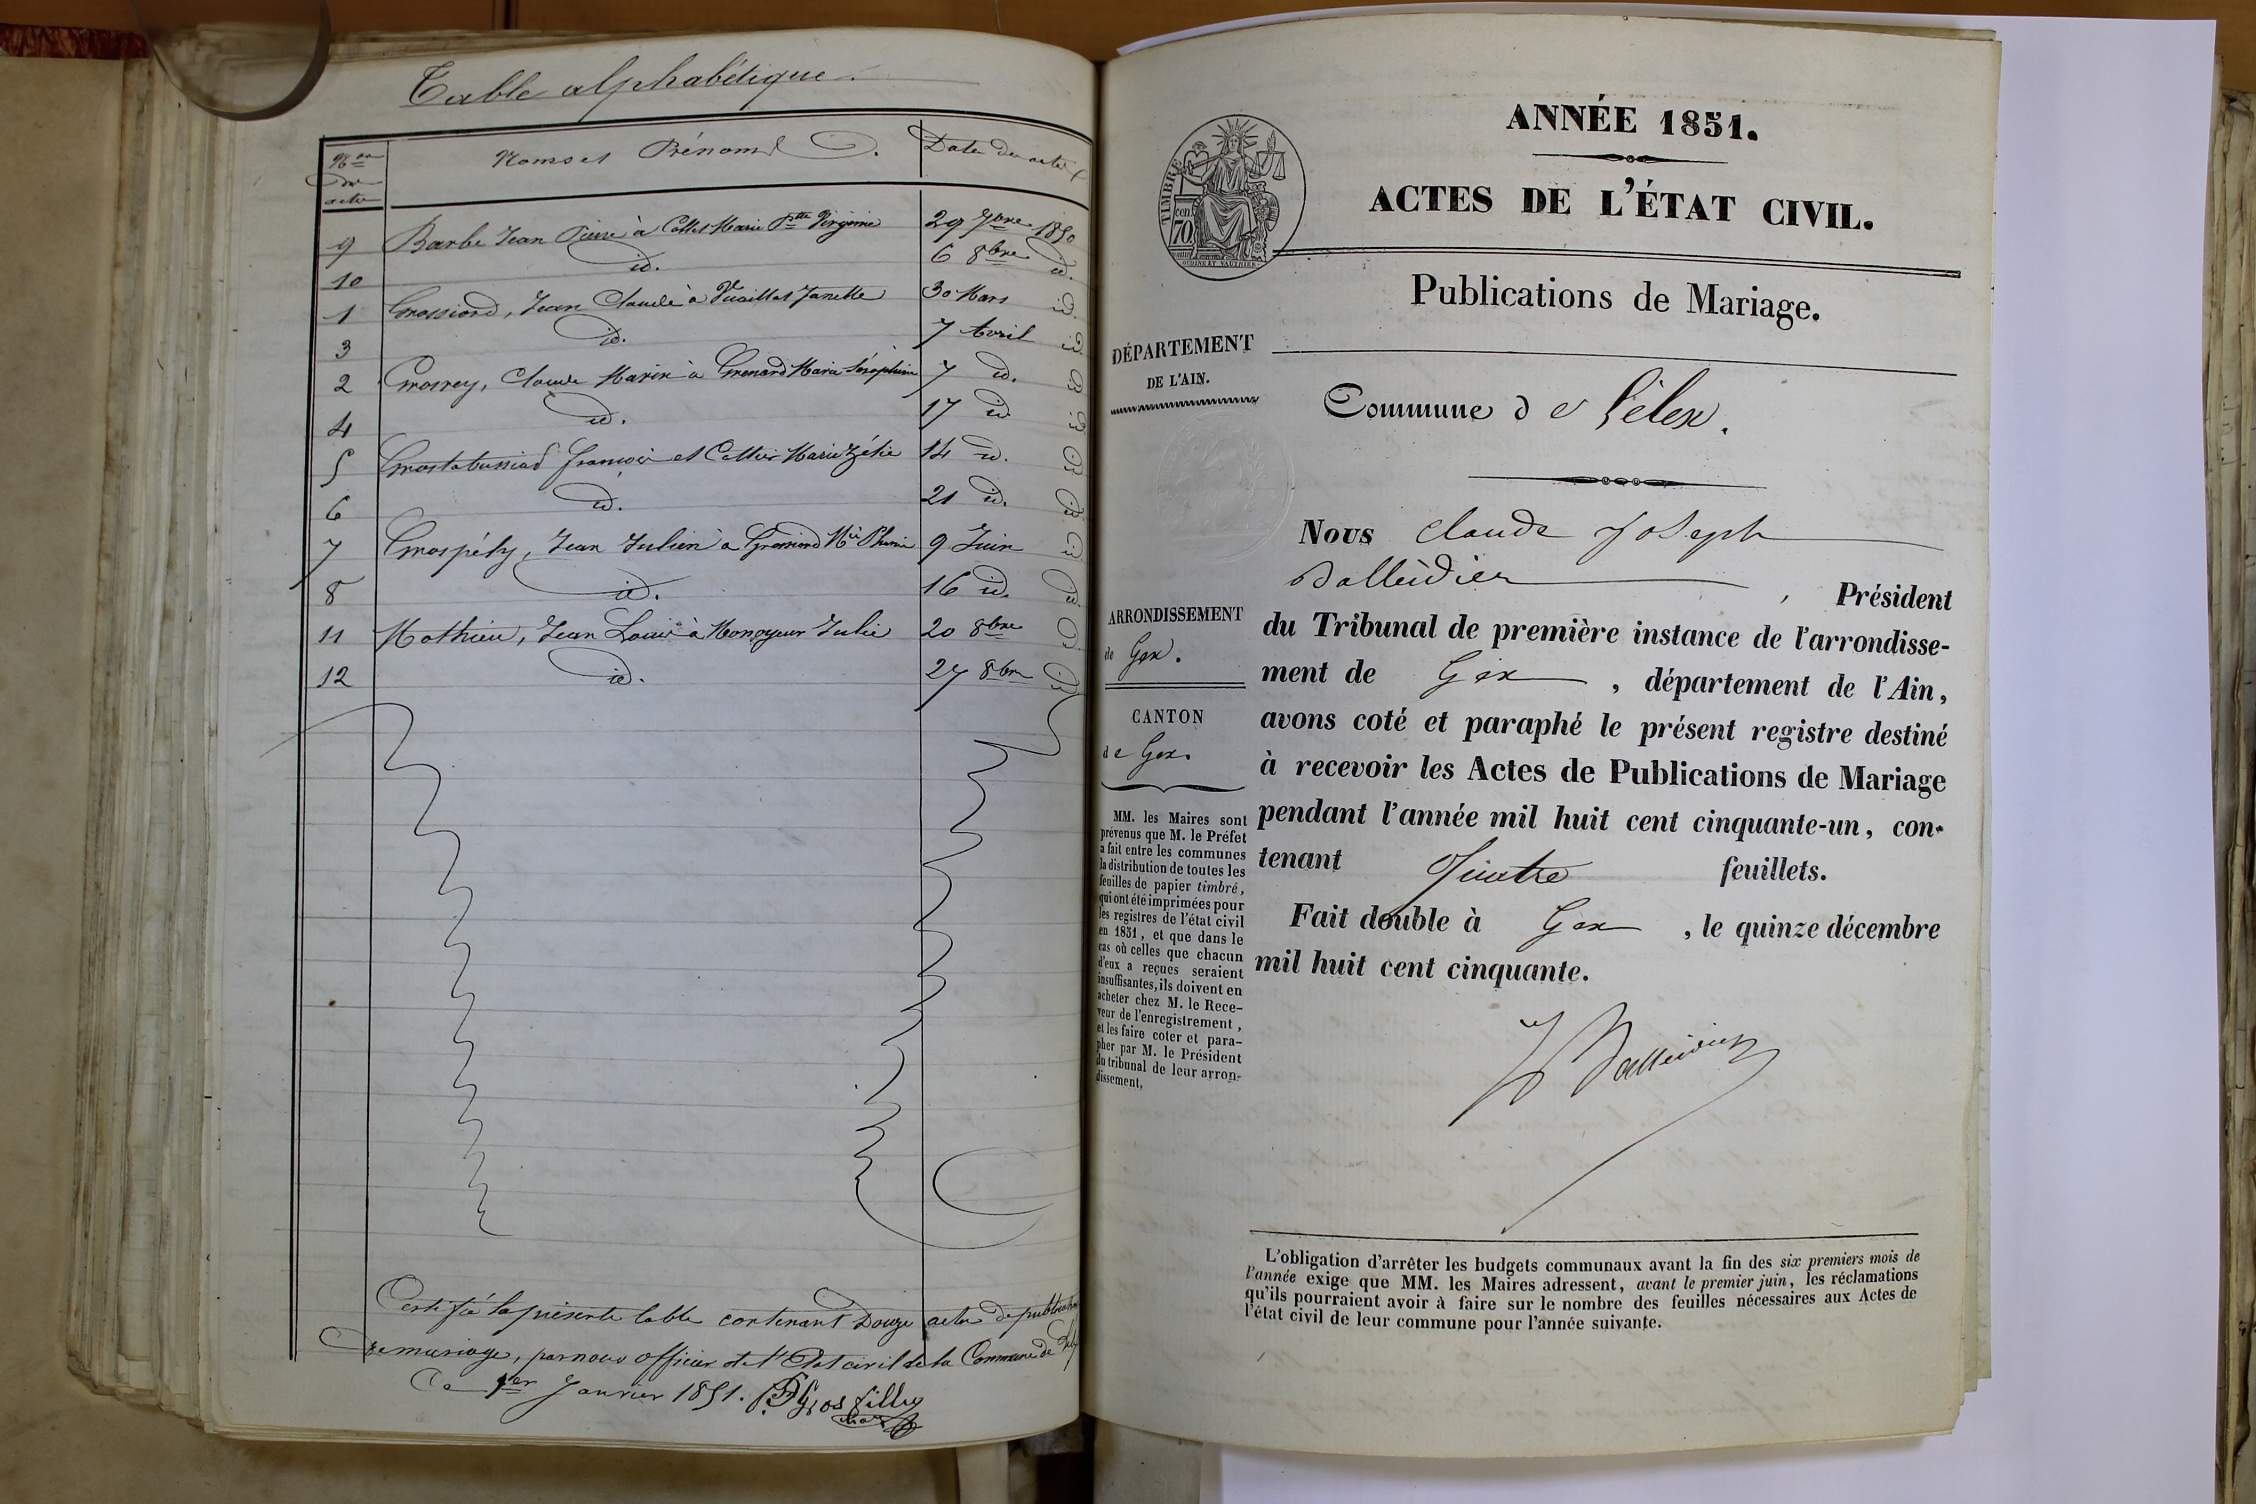 Table alphabétique.
Nos des actes
Noms et Prénoms
Date des actes
9 Barbe Jean Pierre à Collet Marie Virginie 29 7bre 1850
10 id. 6 8bre id.
1 Grossiord, Jean Claude à Vuaillat Janette 30 Mars id.
3 id. 7 Avril id.
2 Grosrey, Claude Marin à Grenard Marie Séraphine 7 id. id.
4 id. 17 id. id.
5 Grostabussiat François et Marie Zélie 14 id. id.
6 id. 21 id. id.
7 Grospély, Jean Julien à Grossiord Mie 9 Juin id.
8 id. 16 id. id.
11 Mathieu, Jean Louis à Monoyeur Julie 20 8bre id.
12 id. 27 8bre id.
Certifié la présente table contenant Douze actes de publications
de mariage, par nous officier de l'Etat civil de la Commune de
Ce 1er Janvier 1851. Grosfilley
ANNÉE 1851.
TIMBRE
70
cent.
OUDINÉ ET VAUTHIER
ACTES DE L'ÉTAT CIVIL.
Publications de Mariage.
DÉPARTEMENT
DE L'AIN.
Commune de Lélex.
Nous Claude Joseph
Balleidier, Président
du Tribunal de première instance de l'arrondisse-
ment de Gex, département de l'Ain,
avons coté et paraphé le présent registre destiné
à recevoir les Actes de Publications de Mariage
pendant l'année mil huit cent cinquante-un, con-
tenant Quatre feuillets.
Fait double à Gex, le quinze décembre
mil huit cent cinquante.
Balleidier
ARRONDISSEMENT
de Gex.
CANTON
de Gex.
MM. les Maires sont
prévenus que M. le Préfet
a fait entre les communes
la distribution de toutes les
feuilles de papier timbré,
qui ont été imprimées pour
les registres de l'état civil
en 1851, et que dans le
cas où celles que chacun
d'eux a reçues seraient
insuffisantes, ils doivent en
acheter chez M. le Rece-
veur de l'enregistrement,
et les faire coter et para-
pher par M. le Président
du tribunal de leur arron-
dissement.
L'obligation d'arrêter les budgets communaux avant la fin des six premiers mois de
l'année exige que MM. les Maires adressent, avant le premier juin, les réclamations
qu'ils pourraient avoir à faire sur le nombre des feuilles nécessaires aux Actes de
l'état civil de leur commune pour l'année suivante.